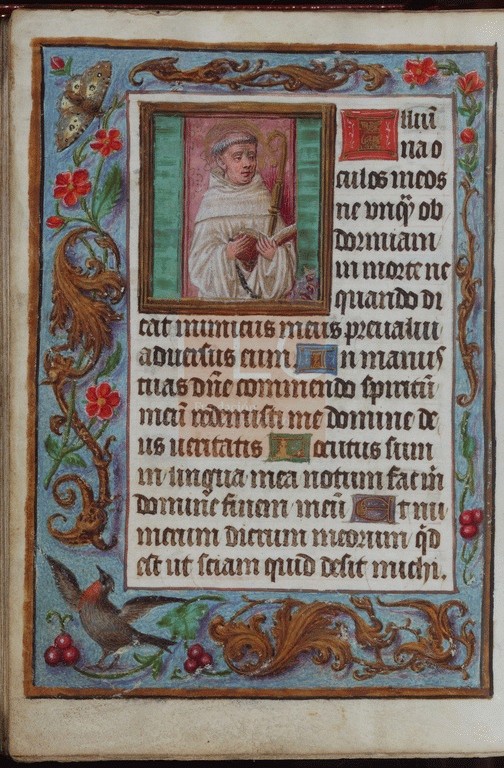 Illumi
na o
culos meos
ne vnqȝ ob
dormiam
in morte ne
quando di
cat inimicus meus preualui
aduersus eum In manus
tuas dn̄e commendo spiritū
meū redemisti me domine de
us ueritatis Locutus sum
in lingua mea notum fac m̄
domine finem meū Et nu
merum dierum meorum qd̄
est ut sciam quid desit michi.